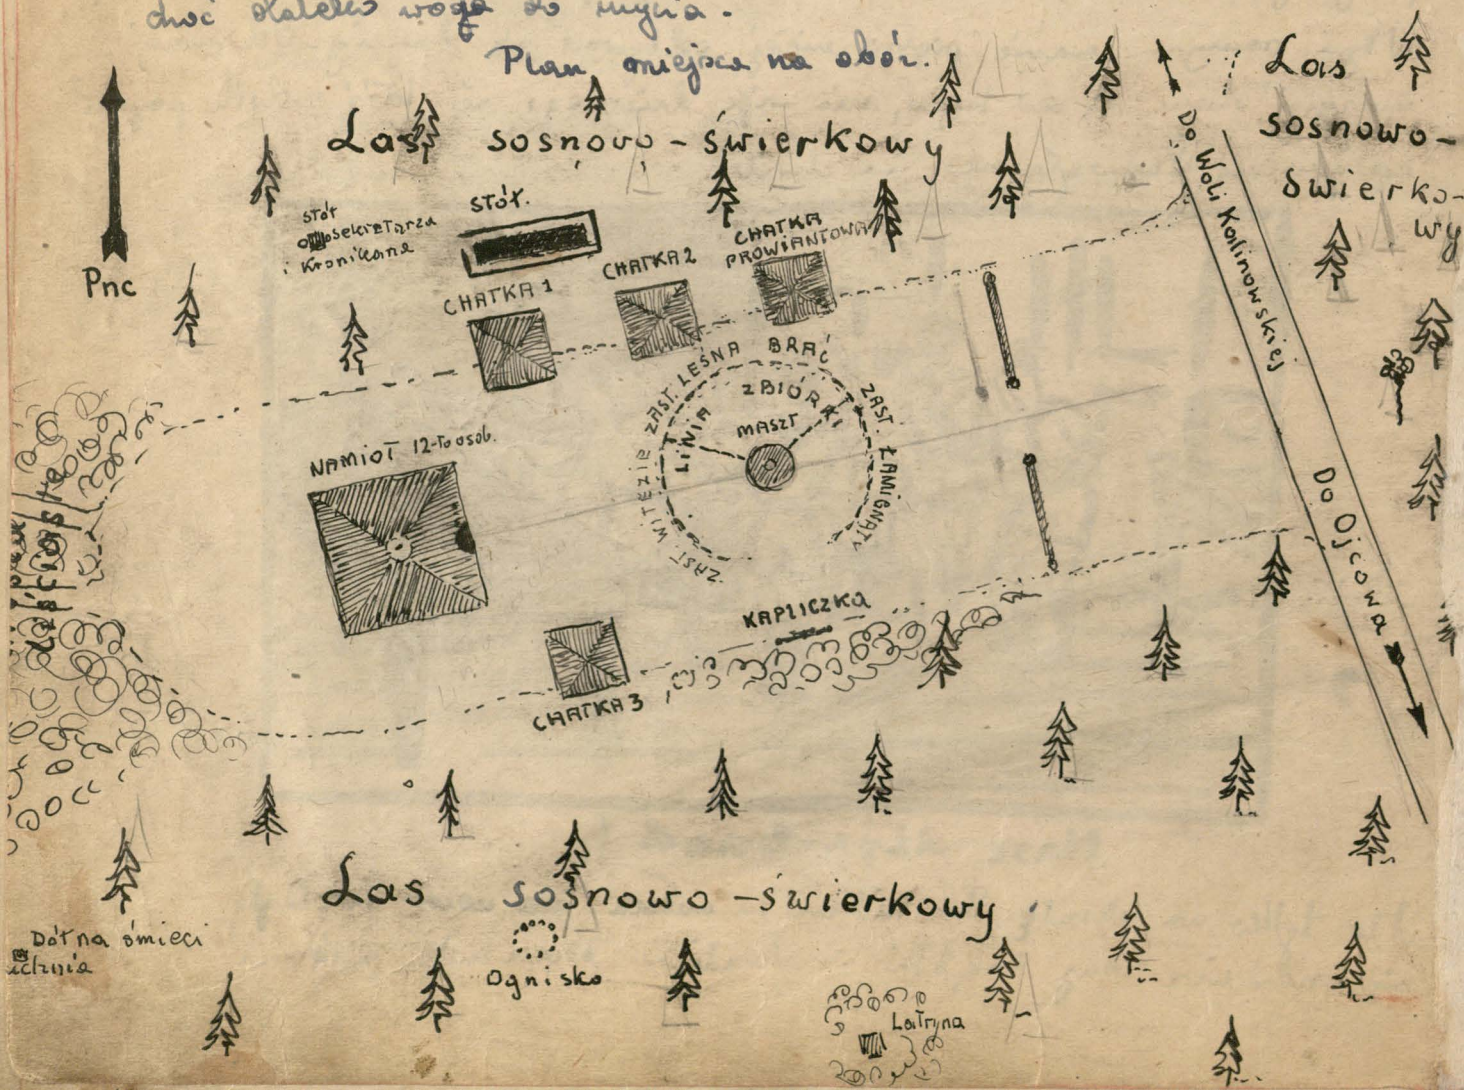 choć daleko wodą do mycia.
Plan miejsca na obóz.
Las sosnowo-świerkowy
Las
sosnowo-
świerko-
wy
Pnc
stół
sekretarza
i Kronikana
STÓŁ.
CHATKA 1
CHATKA 2
CHATKA
PROWIANTOWA
NAMIOT 12-to osob.
ZAST. WITEZIE
ZAST. LEŚNA BRAĆ
ZAST. ŁAMIGNATY
LINIA ZBIÓRKI
MASZT
KAPLICZKA
CHATKA 3
Do Woli Kalinowskiej
Do Ojcowa
Las sosnowo-świerkowy
Dół na śmieci
Ognisko
Latryna